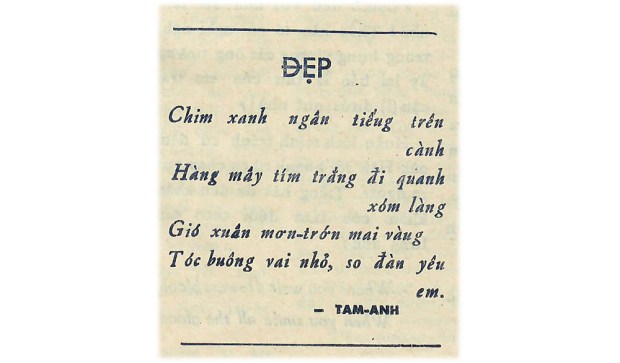 ĐẸP
Chim xanh ngân tiếng trên
cành
Hàng mây tím trắng đi quanh
xóm làng
Gió xuân mơn-trớn mai vàng
Tóc buông vai nhỏ, so đàn yêu
em.
— TAM-ANH